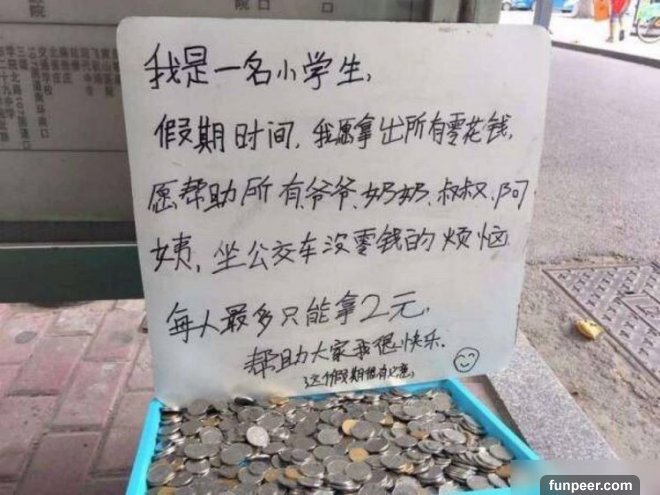 我是一名小学生,
假期时间,我愿拿出所有零花钱,
愿帮助所有爷爷、奶奶、叔叔、阿
姨,坐公交车没零钱的烦恼
每人最多只能拿2元,
帮助大家我很快乐.
这个假期很有意
funpeer.com